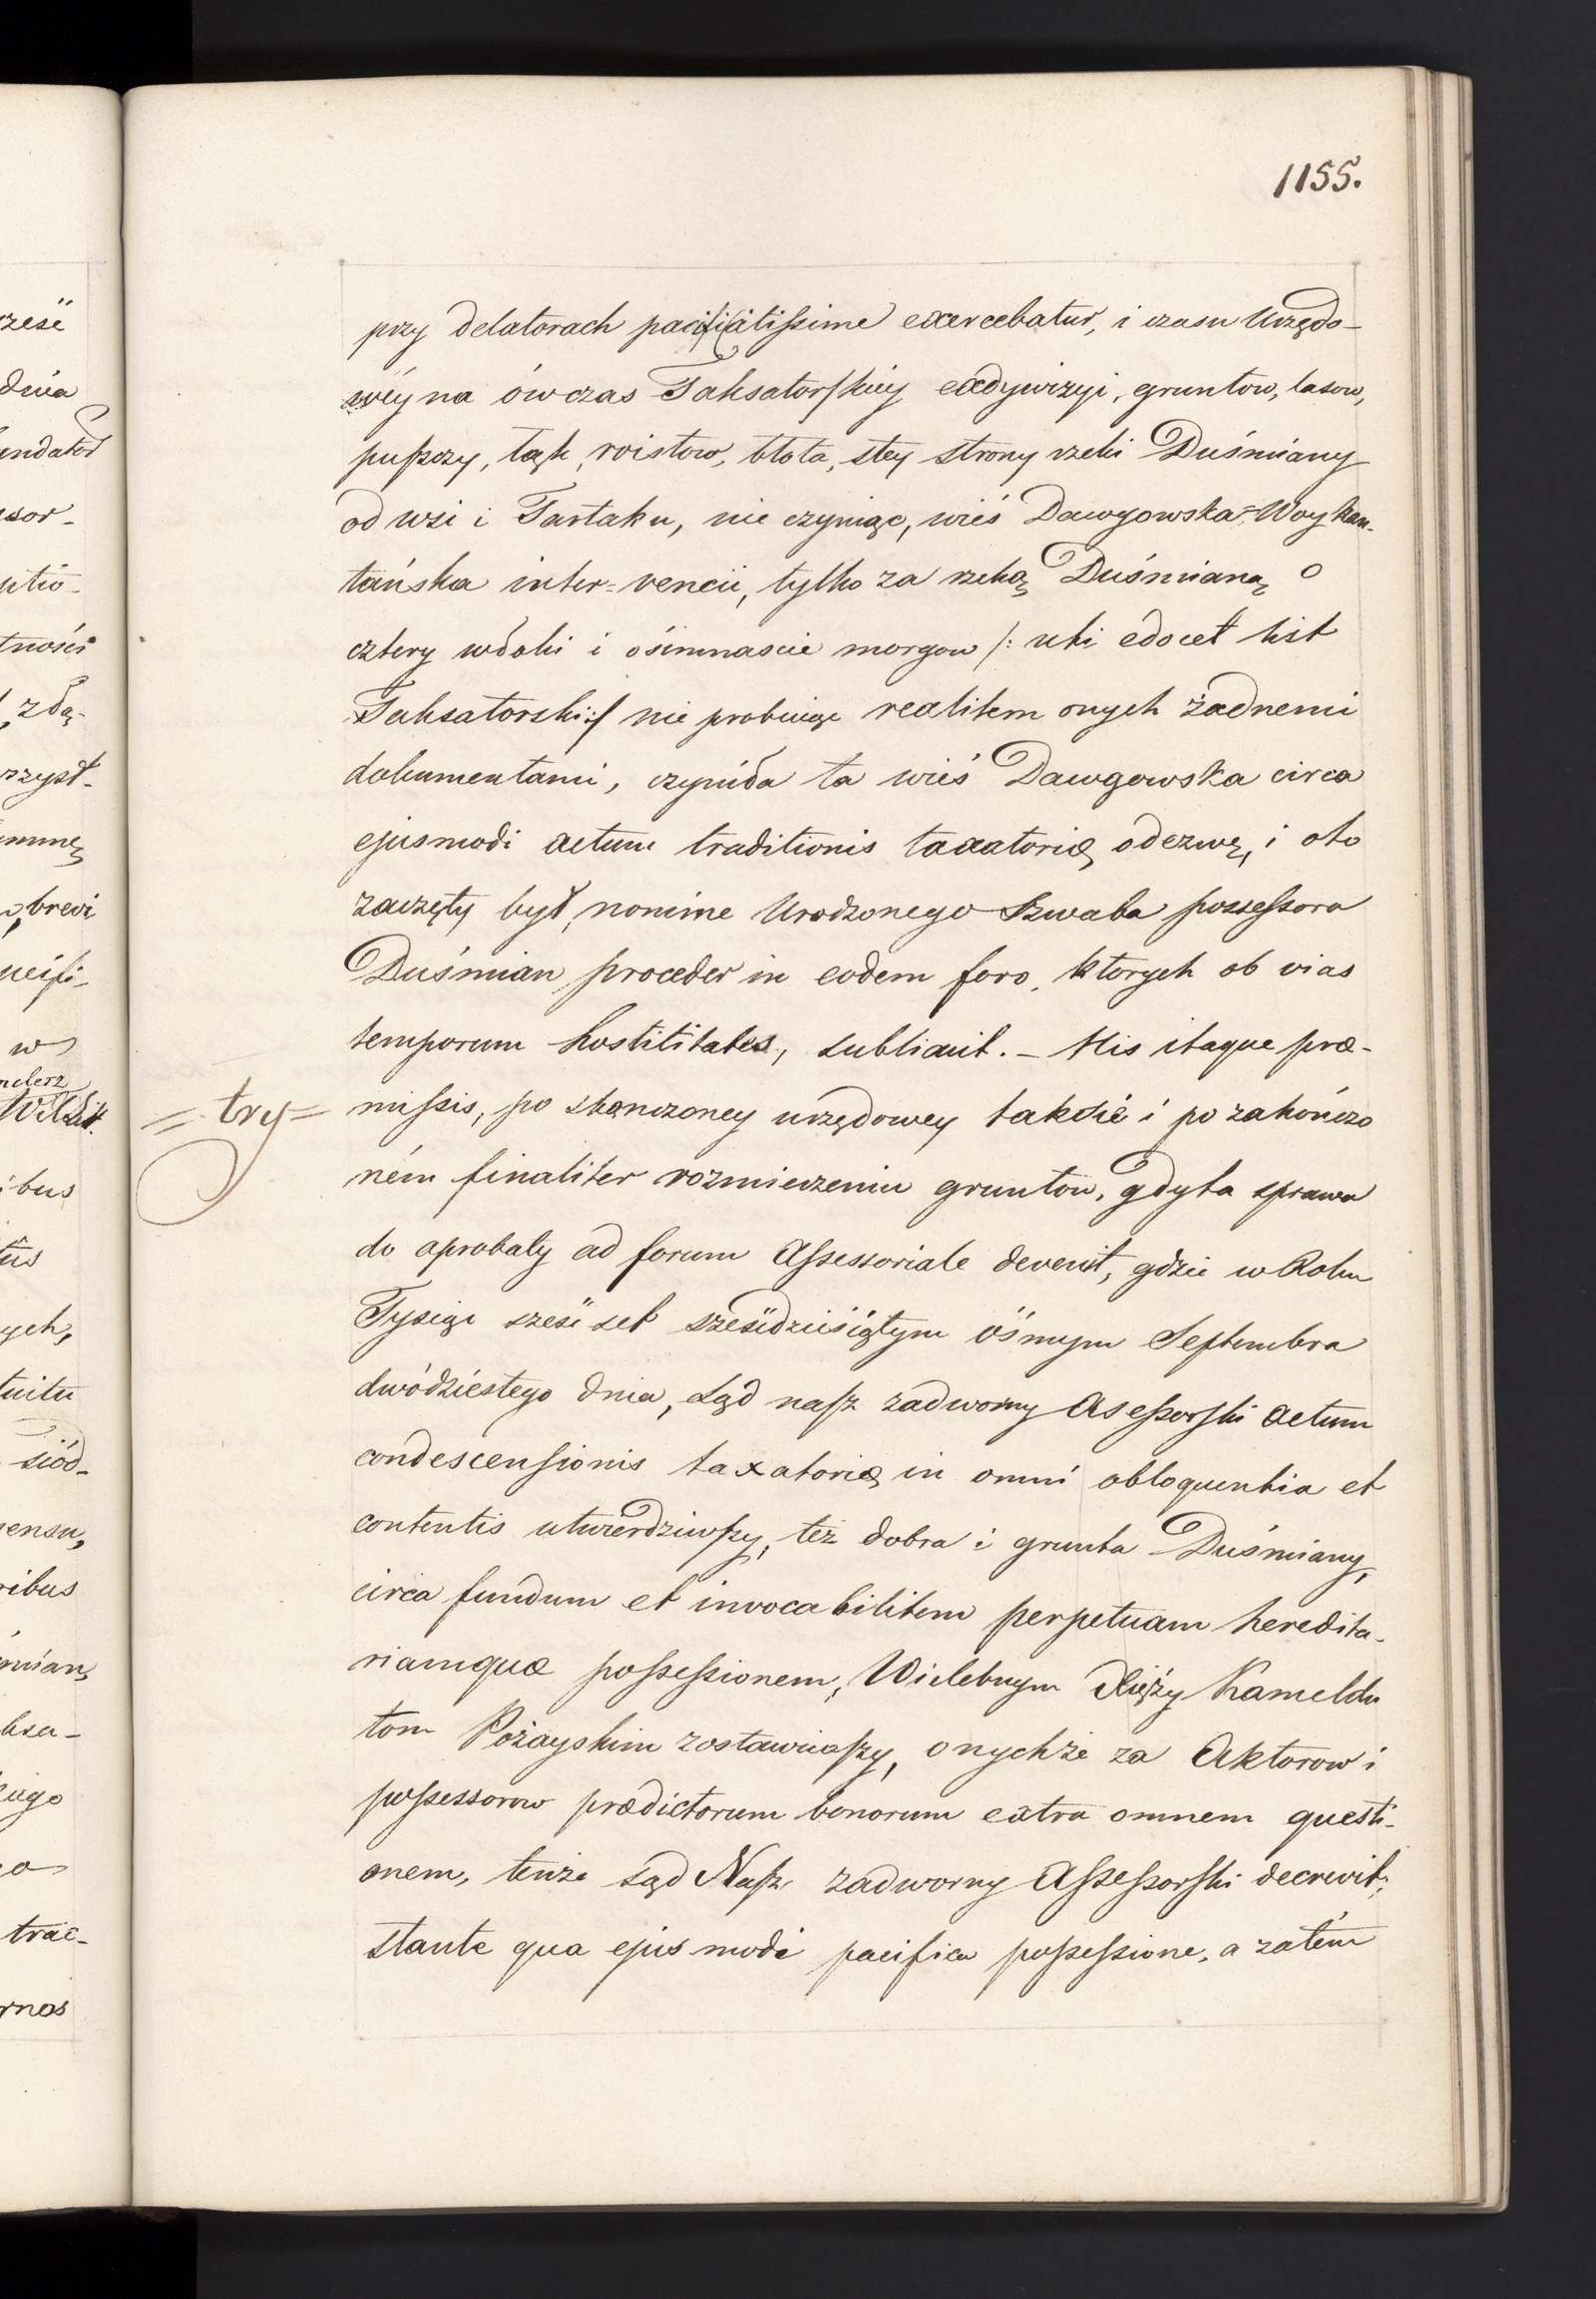 1155.
przy delatorach pacificatissime exercebatur, i czasu Urzędo-
wéy na ówczas Taksatorskiéy exdywizyi, gruntow, lasow,
puszczy, łąk, roistow, błota, stey strony rzeki Duśmiany
od wsi i Tartaku, nie czyniąc, wieś Dawgowska-Woykan-
tańska inter=vencii, tylko za rzeką Duśmianą o
cztery włoki i ośimnascie morgow /: uti edocet list
Taksatorski :/ nie probuiąc realitem onych żadnemi
dokumentami, czyniła ta wieś Dawgowska circa
ejusmodi actum traditionis taxatoriæ, odezwę, i oto
zaczęty był, nomine Urodzonego Szwaba possessora
Duśmian, proceder in eodem foro, ktorych ob vias
temporum hostilitates, subliauit. - His itaque præ-
= try = missis, po skonczoney urzędowey takoie i po zakończo
ném finaliter rozmierzeniu gruntow, gdyta sprawa
do aprobaty ad forum Assessoriale devenit, gdzie w Roku
Tysiąc sześć set sześćdziesiątym ósmym Septembra
dwódziestego dnia, Sąd nasz zadworny Asessorski actum
condescensionis taxatoriæ, in omni obloquentia et
contentis utwierdziwszy, też dobra i grunta Duśmiany,
circa fundum et invocabilitem perpetuam heredita-
riamquæ possessionem, Wielebnym Xięży Kameldu
tom Pożayskim zostawiwszy, onychże za Aktorow i
possessorow prædictorum bonorum extra omnem questi-
onem, tenże sąd Nasz zadworny Assessorski decrevit;
stante qua ejus modi pacifica possessione, a zatém